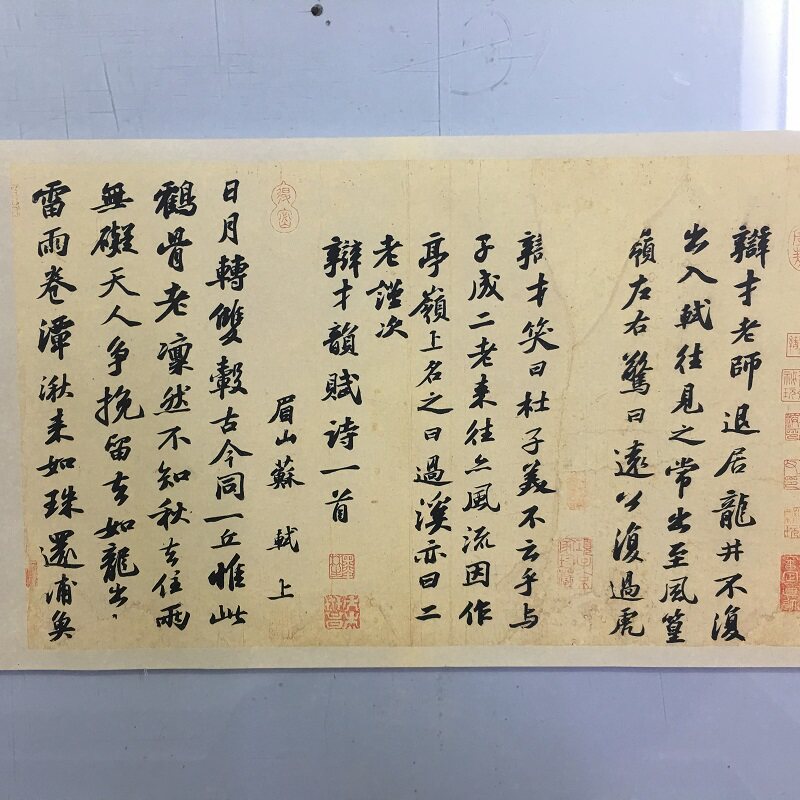 辯才老師退居龍井不復
出入軾往見之常出至風篁
嶺左右驚曰遠公復過虎
辯才笑曰杜子美不云乎與
子成二老來往亦風流因作
亭嶺上名之曰過溪亦曰二
老謹次
辯才韻賦詩一首
眉山蘇軾上
日月轉雙轂古今同一丘惟此
鶴骨老凜然不知秋去住兩
無礙天人爭挽留去如龍出、
雷雨卷潭湫來如珠還浦魚